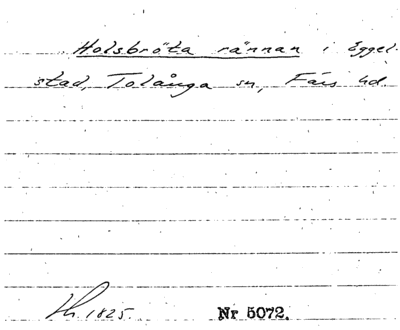 Holsbröta rännan i Eggel-
stad, Tolånga sn, Färs hd.
Lh. 1825. Nr 5072.